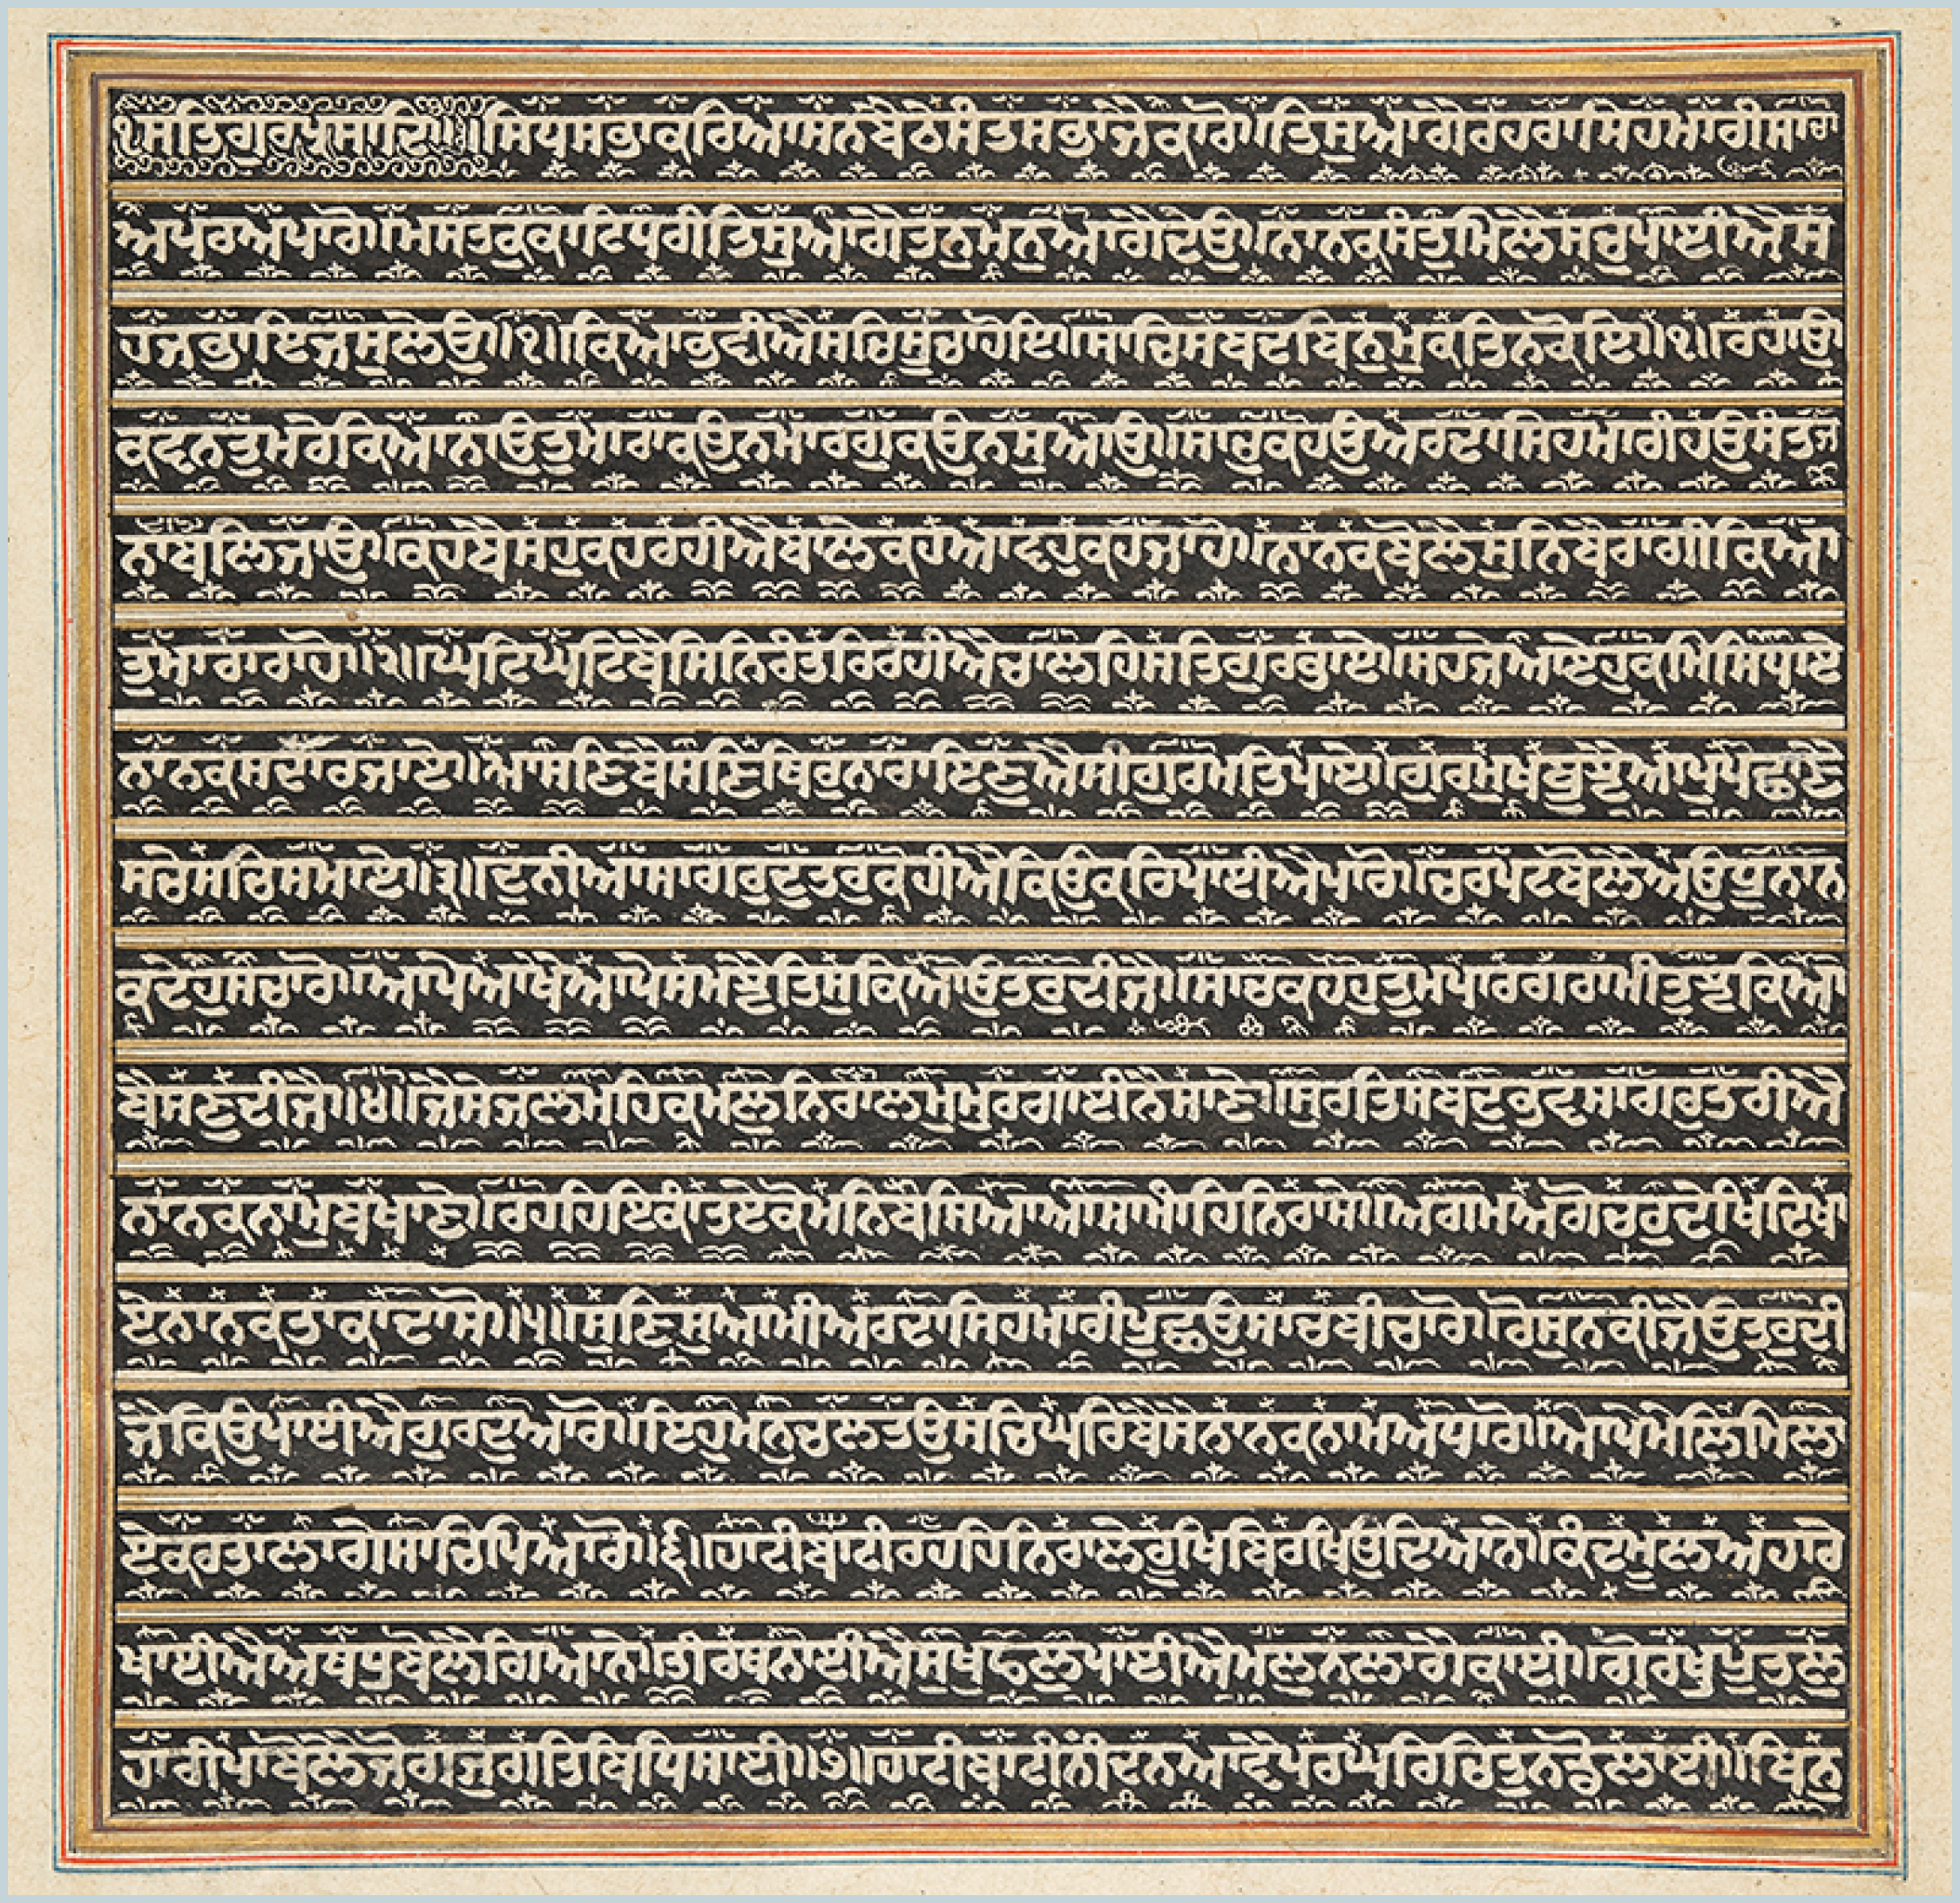 ੧ਸਤਿਗੁਰਪ੍ਰਸਾਦਿ॥॥ਸਿਧਸਭਾਕਰਿਆਸਨਬੈਠੇਸੰਤਸਭਾਜੈਕਾਰੋ॥ਤਿਸੁਆਗੈਰਹਰਾਸਿਹਮਾਰੀਸਾਚਾ
ਅਪਰਅਪਾਰੋ॥ਮਸਤਕੁਕਾਟਿਧਰੀਤਿਸੁਆਗੈਤਨੁਮਨੁਆਗੈਦੇਉ॥ਨਾਨਕਸੰਤੁਮਿਲੈਸਚੁਪਾਈਐਸ
ਹਜਭਾਇਜਸੁਲੇਉ॥੧॥ਕਿਆਭਵੀਐਸਚਿਸੂਚਾਹੋਇ॥ਸਾਚਿਸਬਦਬਿਨੁਮੁਕਤਿਨਕੋਇ॥੧॥ਰਹਾਉ
ਕਵਨਤੁਮਰੇਕਿਆਨਾਉਤੁਮਾਰਾਕਉਨਮਾਰਗੁਕਉਨਸੁਆਉ॥ਸਾਚੁਕਹਉਅਰਦਾਸਿਹਮਾਰੀਹਉਸੰਤਜ
ਨਾਬਲਿਜਾਉ॥ਕਹਬੈਸਹੁਕਹਰਹੀਐਬਾਲੇਕਹਆਵਹੁਕਹਜਾਹੋ॥ਨਾਨਕਬੋਲੈਸੁਨਿਬੈਰਾਗੀਕਿਆ
ਤੁਮਾਰਾਰਾਹੋ॥੨॥ਘਟਿਘਟਿਬੈਸਿਨਿਰੰਤਰਿਰਹੀਐਚਾਲਹਿਸਤਿਗੁਰਭਾਏ॥ਸਹਜੇਆਏਹੁਕਮਿਸਿਧਾਏ
ਨਾਨਕਸਦਾਰਜਾਏ॥ਆਸਣਿਬੈਸਣਿਥਿਰੁਨਾਰਾਇਣੁਐਸੀਗੁਰਮਤਿਪਾਏ॥ਗੁਰਮੁਖਿਬੂਝੈਆਪੁਪਛਾਣੈ
ਸਚੇਸਚਿਸਮਾਏ॥੩॥ਦੁਨੀਆਸਾਗਰੁਦੁਤਰੁਕਹੀਐਕਿਉਕਰਿਪਾਈਐਪਾਰੋ॥ਚਰਪਟਬੋਲੈਅਉਧੂਨਾਨ
ਕਦੇਹੁਸਚਾਰੋ॥ਆਪੇਆਖੈਆਪੇਸਮਝੈਤਿਸੁਕਿਆਉਤਰੁਦੀਜੈ॥ਸਾਚਕਹਹੁਤੁਮਪਾਰਗਰਾਮੀਤੁਝੁਕਿਆ
ਬੈਸਣੁਦੀਜੈ॥੪॥ਜੈਸੇਜਲਮਹਿਕਮਲੁਨਿਰਾਲਮੁਮੁਰਗਾਈਨੈਸਾਣੇ॥ਸੁਰਤਿਸਬਦੁਭਵਸਾਗਰੁਤਰੀਐ
ਨਾਨਕਨਾਮੁਬਖਾਣੇ॥ਰਹਹਿਇਕਾਂਤਏਕੋਮਨਿਬਸਿਆਆਸਾਮਾਹਿਨਿਰਾਸੋ॥ਅਗਮਅਗੋਚਰੁਦੇਖਿਦਿਖਾ
ਏਨਾਨਕਤਾਕਾਦਾਸੋ॥੫॥ਸੁਣਿਸੁਆਮੀਅਰਦਾਸਿਹਮਾਰੀਪੂਛਉਸਾਚਬੀਚਾਰੋ॥ਰੋਸੁਨਕੀਜੈਉਤਰੁਦੀ
ਜੈਕਿਉਪਾਈਐਗੁਰਦੁਆਰੋ॥ਇਹੁਮਨੁਚਲਤਉਸਚਿਘਰਿਬੈਸੈਨਾਨਕਨਾਮਅਧਾਰੋ॥ਆਪੇਮੇਲਿਮਿਲਾ
ਏਕਰਤਾਲਾਗੈਸਾਚਿਪਿਆਰੋ॥੬॥ਹਾਟੀਬਾਟੀਰਹਹਿਨਿਰਾਲੇਰੂਖਿਬਿਰਖਿਉਦਿਆਨੇ॥ਕੰਦਮੂਲਅਹਾਰੋ
ਖਾਈਐਅਥਧੂਬੋਲੈਗਿਆਨੇ॥ਤੀਰਥਨਾਈਐਸੁਖੁਫਲੁਪਾਈਐਮਲੁਨਲਾਗੈਕਾਈ॥ਗੋਰਖਪੂਤਲੁ
ਹਾਰੀਪਾਬੋਲੈਜੋਗਜੁਗਤਿਬਿਧਿਸਾਈ॥੭॥ਹਾਟੀਬਾਟੀਨੀਦਨਆਵੈਪਰਘਰਿਚਿਤੁਨਡੋੁਲਾਈ॥ਬਿਨੁ